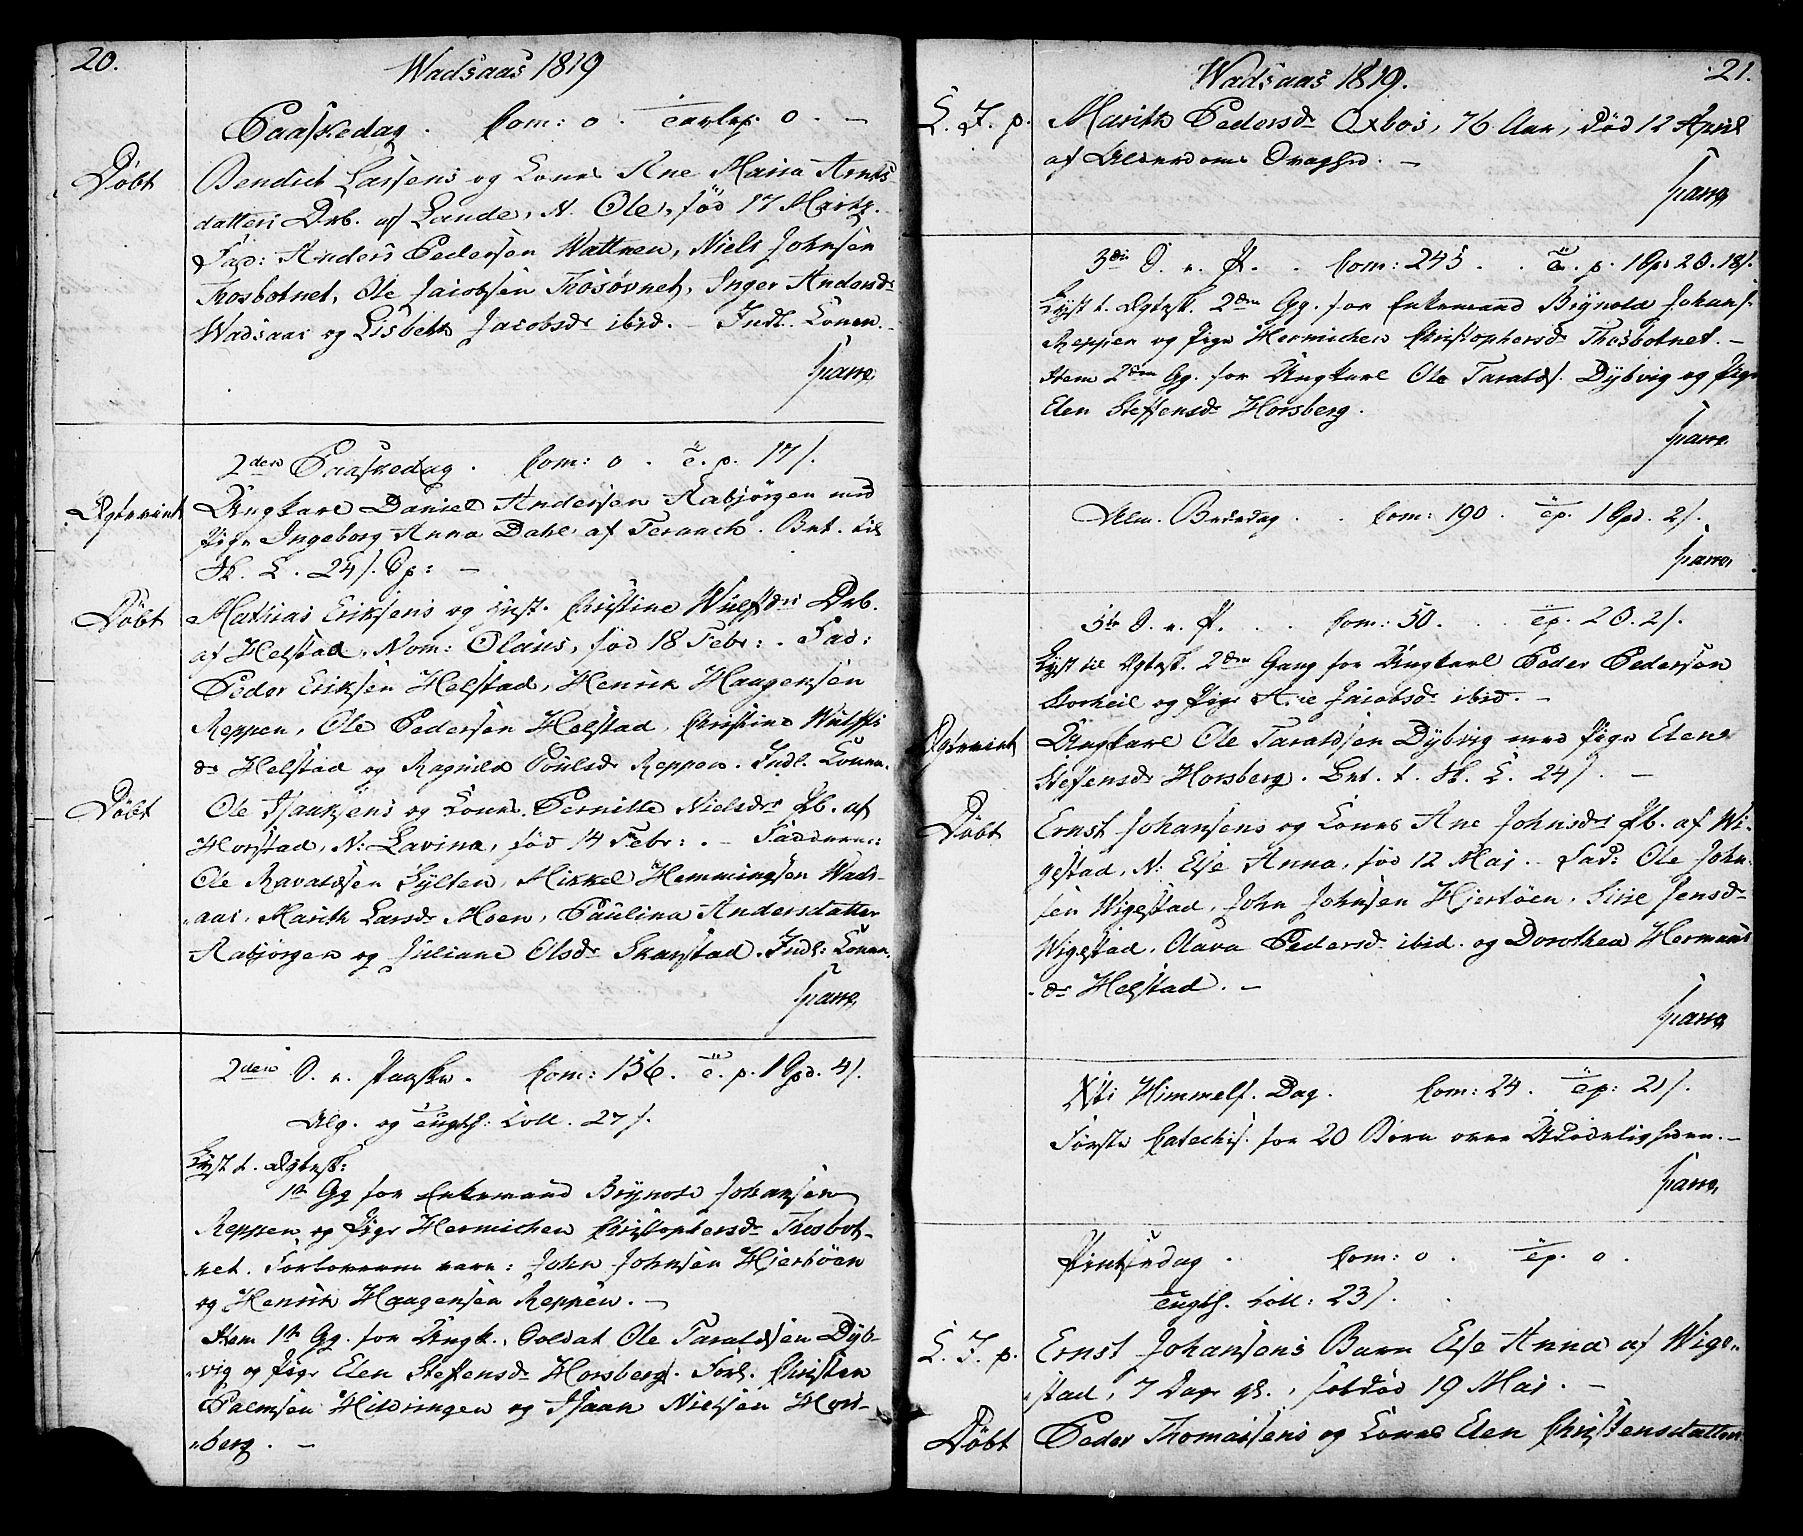 20.
Wadsaas 1819
Paaskedag. Com: 0. Tavlep. 0. —
Døbt
Bendict Larsens og Kones Ane Maria Arnts-
datters Drb. af Lande, N. Ole, fød 17 Marts.
Fad: Anders Pedersen Wattnen, Niels Johnsen
Thosbotnet, Ole Jacobsen Tosøvnet, Inger Andersdr
Wadsaas og Lisbeth Jacobsdr ibid. — Indl. Konen. —
Sparre
2den Paaskedag. Com: 0. T. p. 17 s.
Ægteviet
Ungkarl Daniel Andersen Aabjørgen med
Pige Ingeborg Anna Dahl af Teraack. Bet. til
Sk. C. 24 s. Sp: —
Døbt
Mathias Eriksens og Hust. Christine Wulfsdrs Drb.
af Helstad, Nom: Olaus, fød 18 Febr: . Fad:
Peder Eriksen Helstad, Henrik Haagensen
Reppen, Ole Pedersen Helstad, Christine Wulffs
dr Helstad og Ragnild Poulsdr Reppen. Indl. Konen.
Døbt
Ole Isaaksens og Kones Pernille Nielsdrs Pb. af
Horstad, N: Lavina, fød 14 Febr: . — Fadderne:
Ole Ravaldsen Sylten, Mikkel Hemmingsen Wads-
aas, Marith Larsdr Moen, Paulina Andersdatter
Aabjørgen og Juliane Olsdr Skarstad. Indl: Konen.
Sparre
2den S. e. Paaske. Com: 156. T. p. 1 Spd. 4 s.
Alg. og Tugth: Coll. 27 s.
Lyst t. Ægtesk:
1te Gg for Enkemand Brynold Johansen
Reppen og Pige Hermichen Christophersdr Thosbot-
net. Forloverne vare: John Johnsen Hjertøen
og Henrik Haagensen Reppen. —
Item 1te Gg. for Ungk. Soldat Ole Taraldsen Dyb-
vig og Pige Elen Steffensdr Horsberg. Forl. Christen
Palmsen Hildringen og Isaan Nielsen Hors-
berg. —
21.
Wadsaas 1819.
L. J. p.
Marith Pedersdr Oxbos, 76 Aar, død 12 April
af Alderdoms Svaghed. —
Sparre
3die S. e. P. Com: 245. T. p. 1 Sp. 2 O. 18 s.
Lyst t. Ægtesk. 2den Gg. for Enkemand Brynold Johans.
Reppen og Pige Hermichen Christophersdr Thosbotnet. —
Item 2den Gg. for Ungkarl Ole Taralds. Dybvig og Pige
Elen Steffensdr Horsberg.
Sparre
Alm. Bededag. Com: 190. T.p. 1 Spd. 2 s.
Sparre
5te S. e. P. Com: 50. T.p. 2 O. 2 s.
Lyst til Ægtesk. 2den Gang for Ungkarl Peder Pedersen
Storheil og Pige Ane Jacobsdr ibid. —
Ægteviet
Ungkarl Ole Taraldsen Dybvig med Pige Elene
Steffensdr Horsberg. Bet. t. Sk. C. 24 s. —
Døbt
Ernst Johansens og Kones Ane Johnsdrs Pb. af Wi-
gestad, N: Else Anna, fød 12 Maj. — Fad: Ole John-
sen Wigestad, John Johnsen Hjertøen, Sirie Jensdr
Wigestad, Olava Pedersdr ibid. og Dorothea Hermans
dr Helstad. —
Sparre
Xsti Himmelf. Dag. Com: 24. T.p: 21 s.
Første Catechis. for 20 Børn over Udødeligheden. —
Sparre
Pintsedag. Com: 0. T.p. 0.
Tugth. Coll: 23 s.
L. J. p.
Ernst Johansens Barn Else Anna af Wige-
stad, 7 Dage gl., fød død 19 Mai. —
Døbt
Peder Thomassens og Kones Elen Christensdatters